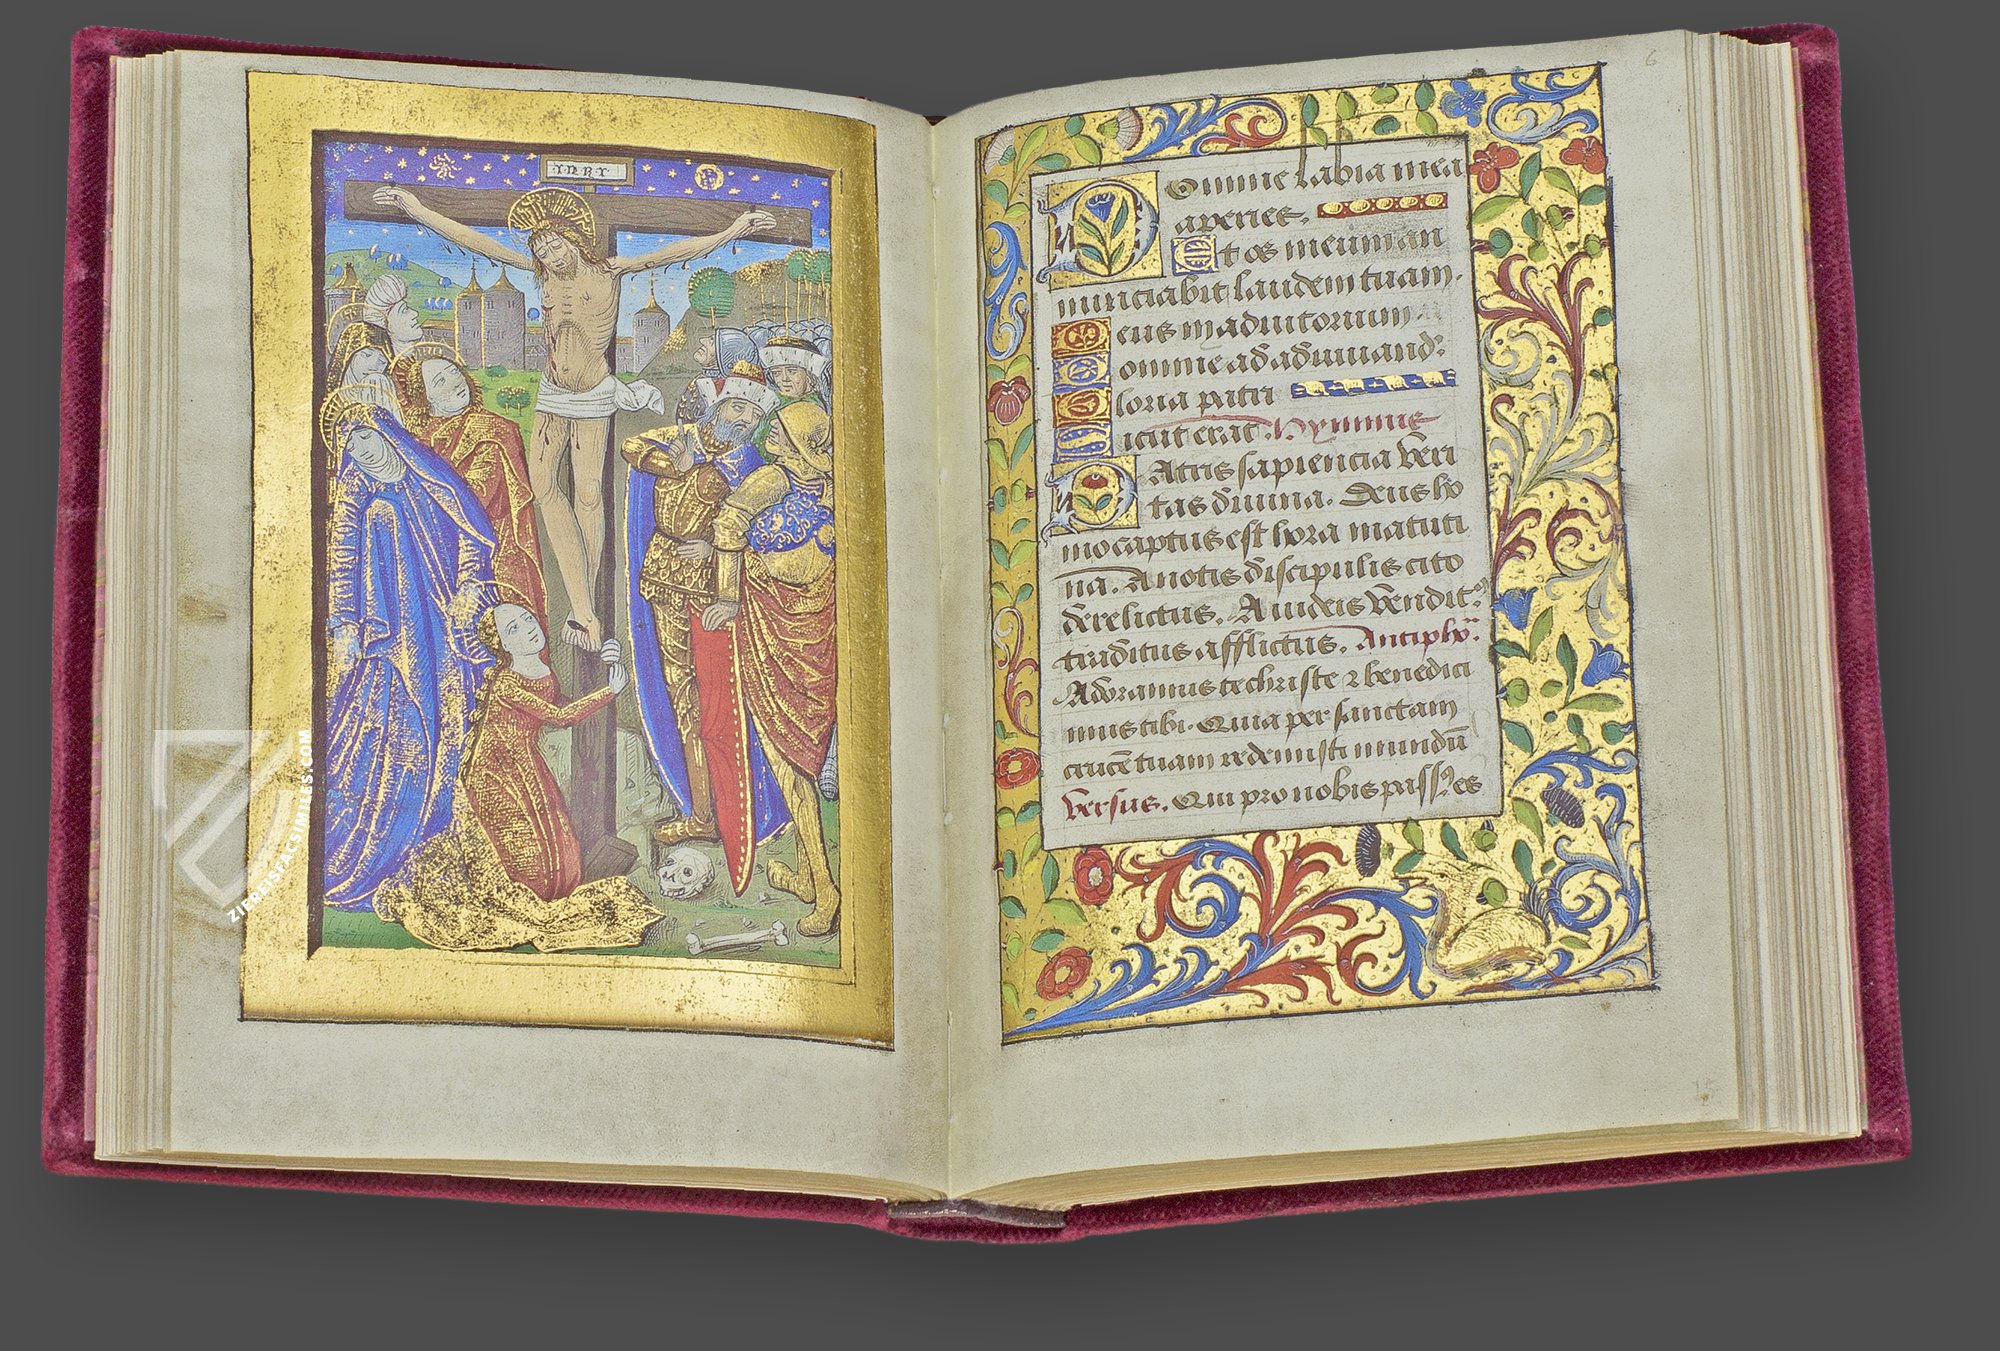 INRI
ZIEREISFACSIMILES.COM
6
Domine labia mea
aperies.
Et os meum an
nunciabit laudem tuam.
Deus in adiutorium
Domine ad adiuuand.
Gloria patri
Sicut erat. Hymnus
Patris sapiencia veri
tas diuina. Deus ho
mo captus est hora matuti
na. A notis discipulis cito
derelictus. A iudeis vendit⁹
traditus afflictus. Antipho.
Adoramus te christe ⁊ benedici
mus tibi. Quia per sanctam
crucē tuam redemisti mundū
Versus. Qui pro nobis pass⁹ es